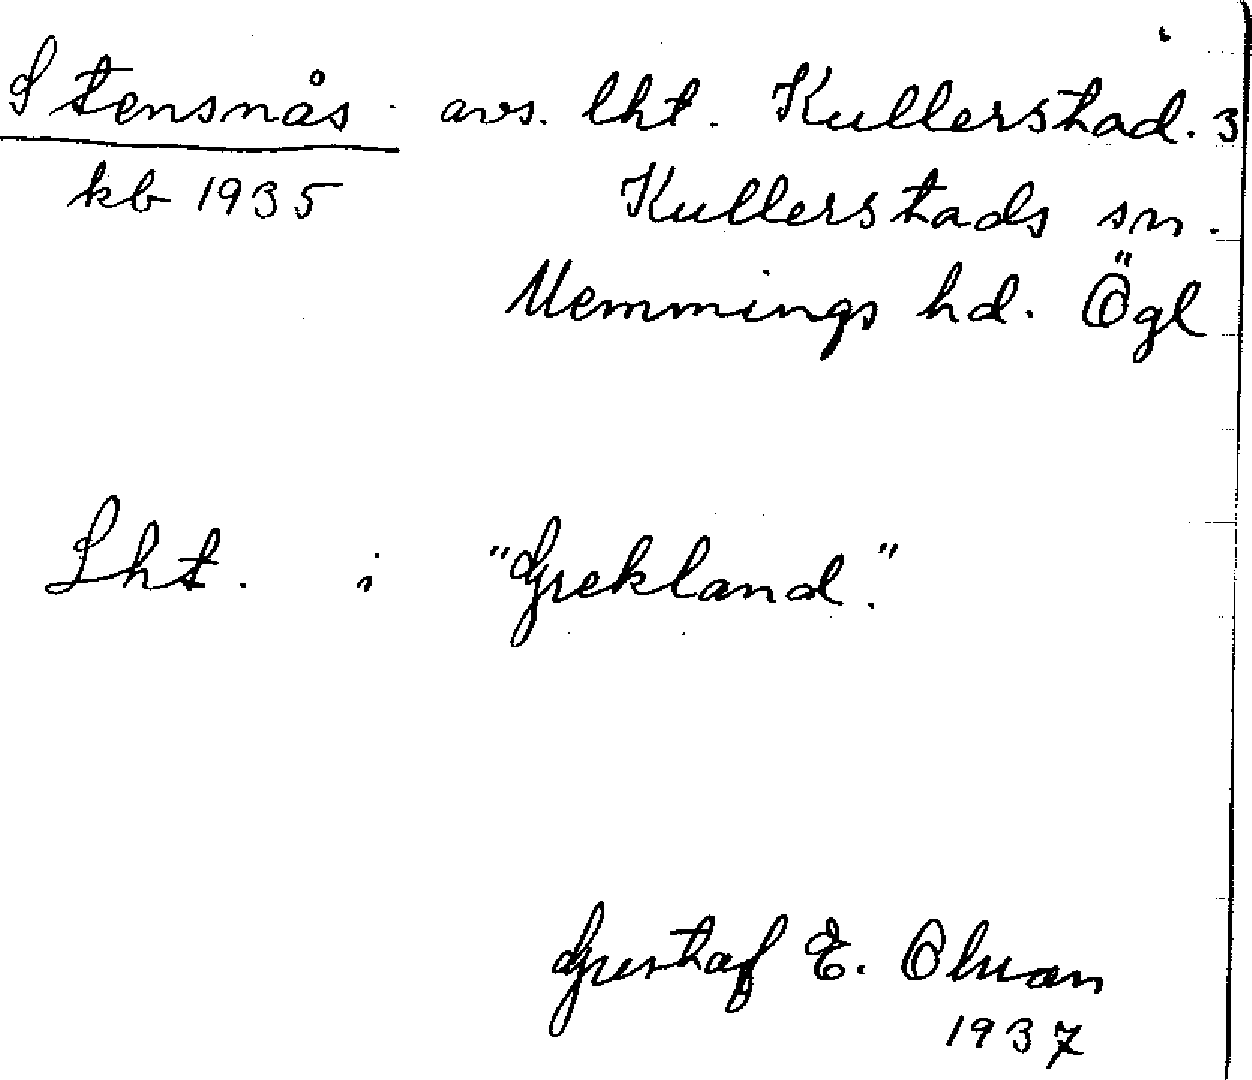 Stensnås. avs. lht. Kullerstad. 3
kb 1935 Kullerstads sn.
Memmings hd. Ögl
Lht. i "Grekland."
Gustaf E. Olsson
1937